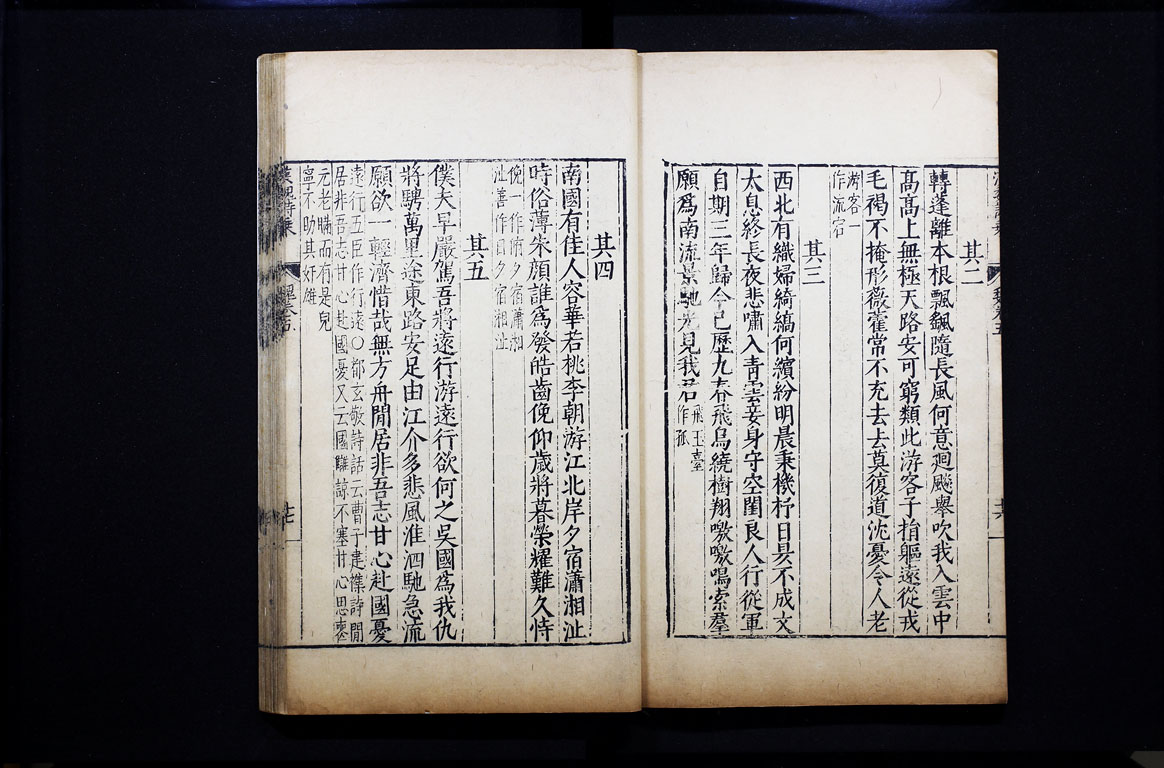 其二
轉蓬離本根飄颻隨長風何意廻飇舉吹我入雲中
髙髙上無極天路安可窮類此游客子捐軀遠從戎
毛褐不掩形薇藿常不充去去莫復道沈憂令人老
游客一
作流宕
其三
西北有織婦綺縞何繽紛明晨秉機杼日昃不成文
太息終長夜悲嘯入青雲妾身守空閨良人行從軍
自期三年歸今已歷九春飛鳥繞樹翔噭噭鳴索羣
願爲南流景馳光見我君
飛玉臺
作孤
其四
南國有佳人容華若桃李朝游江北岸夕宿瀟湘沚
時俗薄朱顏誰爲發皓齒俛仰歲將暮榮耀難久恃
俛一作俯夕宿瀟湘
沚善作日夕宿湘沚
其五
僕夫早嚴駕吾將遠行游遠行欲何之吳國爲我仇
將騁萬里途東路安足由江介多悲風淮泗馳急流
願欲一輕濟惜哉無方舟閒居非吾志甘心赴國憂
遠行五臣作行遠○都玄敬詩話云曹子建雜詩閒
居非吾志甘心赴國憂又云國讎諒不塞甘心思喪
元老瞞而有是兒
寧不助其奸雄